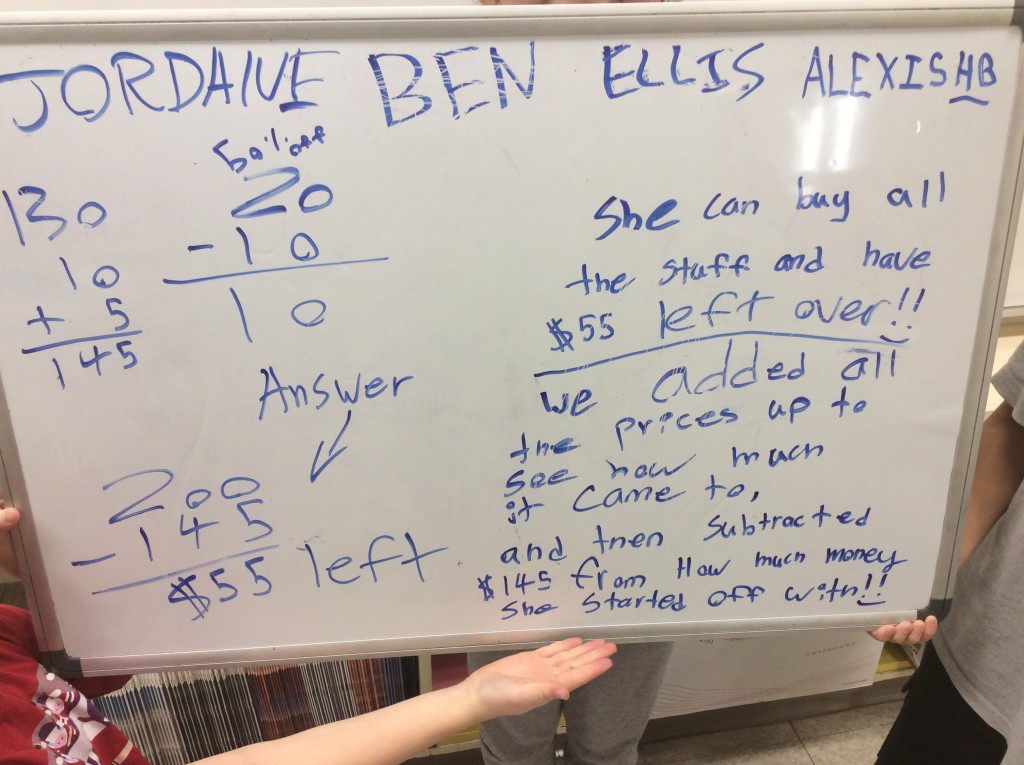 JORDAINE BEN ELLIS ALEXIS HB
50% off
130
10
+ 5
145
20
- 10
10
Answer
200
- 145
$55 left
She can buy all
the stuff and have
$55 left over!!
we added all
the prices up to
see how much
it came to,
and then subtracted
$145 from How much money
she started off with!!